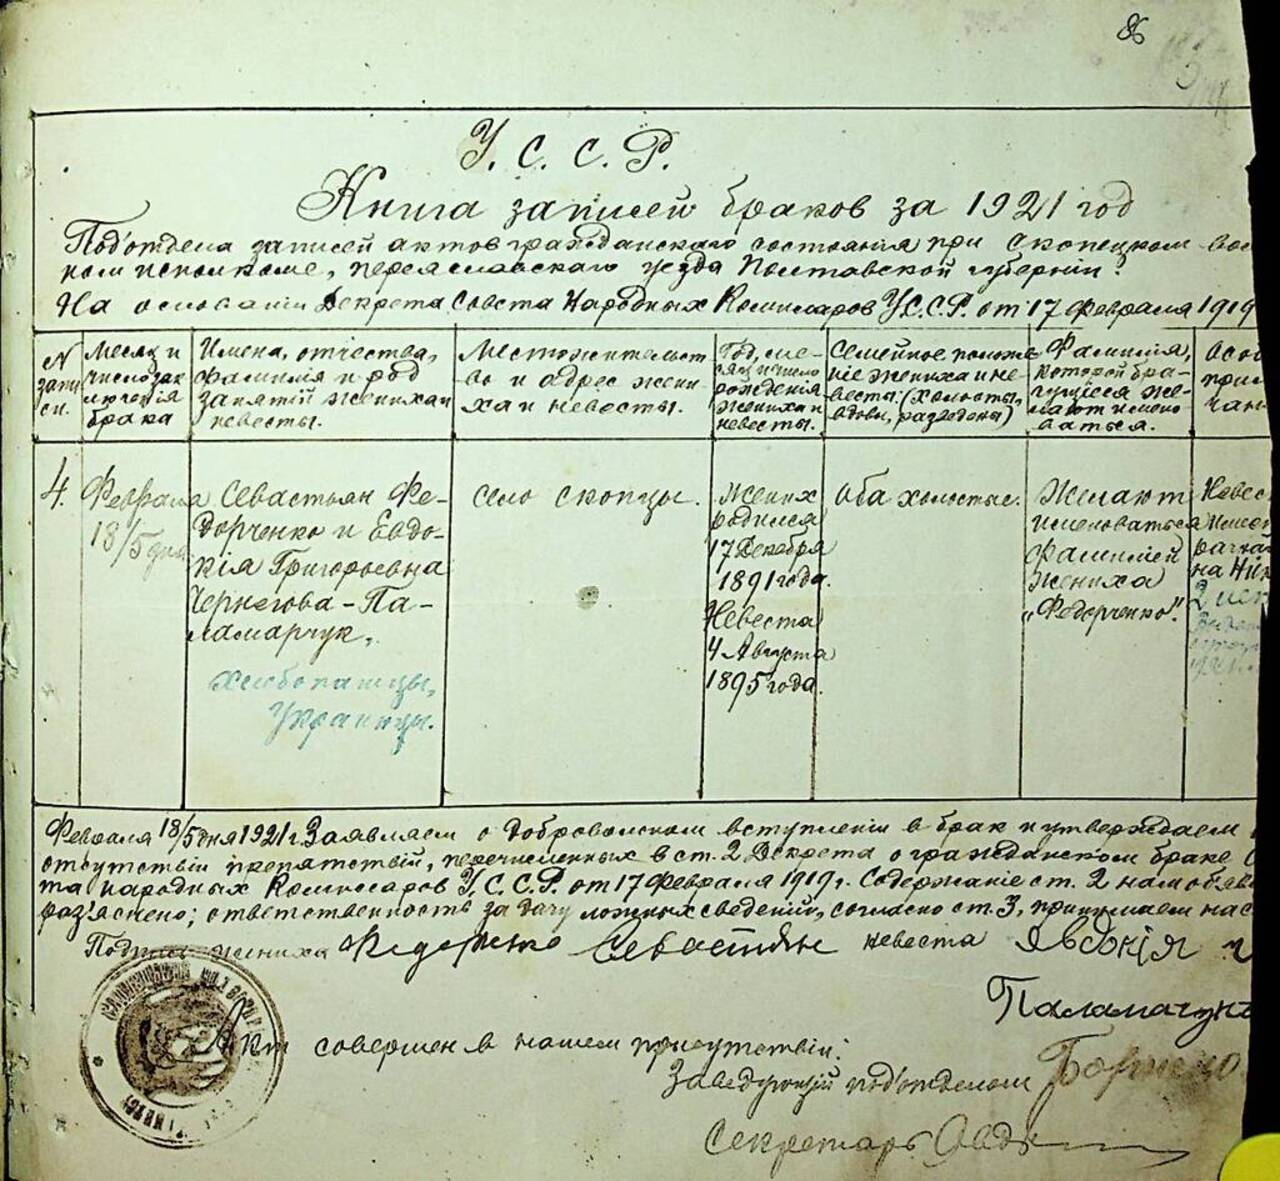 86
У. С. С. Р.
Книга записей браков за 1921 год
Под'отдела записей актов гражданскаго состоянія при Скопецком
ном исполкоме, переяславскаго уезда Полтавской губерніи.
На основаніи Декрета Совета Народных Коммисаров У.С.С.Р. от 17 февраля 1919
N
запи
си.
Месяц и
число зак
лючения
брака
Имена, отчества,
фамилія и род
занятій жениха и
невесты.
Местожительст
во и адрес жени-
ха и невесты.
Год, ме-
сяц и число
рождения
жениха и
невесты.
Семейное полож
ніе жениха и не-
весты: (холосты,
вдовы, разведены)
Фамилія,
которой бра-
чущіеся же-
лают имено-
ваться.
Осо
при
чан
4.
Февраля
18/5 дня
Севастьян Фе-
дорченко и Евдо-
кія Григорьевна
Чернегова-Па-
ламарчук,
хлебопашцы,
Украинцы.
село Скопцы.
Жених
родился
17 Декабря
1891 года.
Невеста
4 Августа
1895 года.
Оба холостые.
Желают
именоваться
фамилией
жениха
„Федорченко".
Невес
Февраля 18/5 дня 1921 г. Заявляем о добровольном вступленіи в брак и утверждаем
отсутствіи препятствій, перечисленных в ст. 2 Декрета о гражданском браке
та народных Коммисаров У.С.С.Р. от 17 февраля 1919 г. Содержаніе ст. 2 нам об'яв
раз'яснено; ответственность за дачу ложных сведений, согласно ст. 3, принимаем на с
Подпись жениха Федорченко Севастьян невеста Явдокія
Паламарчук
Акт совершен в нашем присутствіи:
Заведующій под'отделом
Секретарь